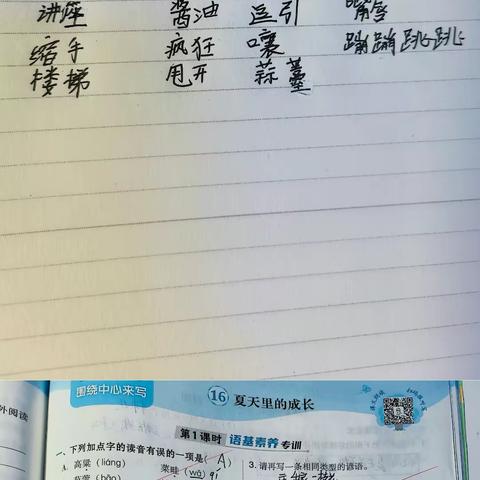 讲座 酱油 逗引 嘴唇
缩手 疯狂 嚷 蹦蹦跳跳
楼梯 甩开 蒜薹
围绕中心来写
16 夏天里的成长
外阅读
第1课时 语基素养专训
一、下列加点字的读音有误的一项是( A )
3. 请再写一条相同类型的谚语。
A. 高粱(liáng) 菜畦(wā) qí
(bāo)